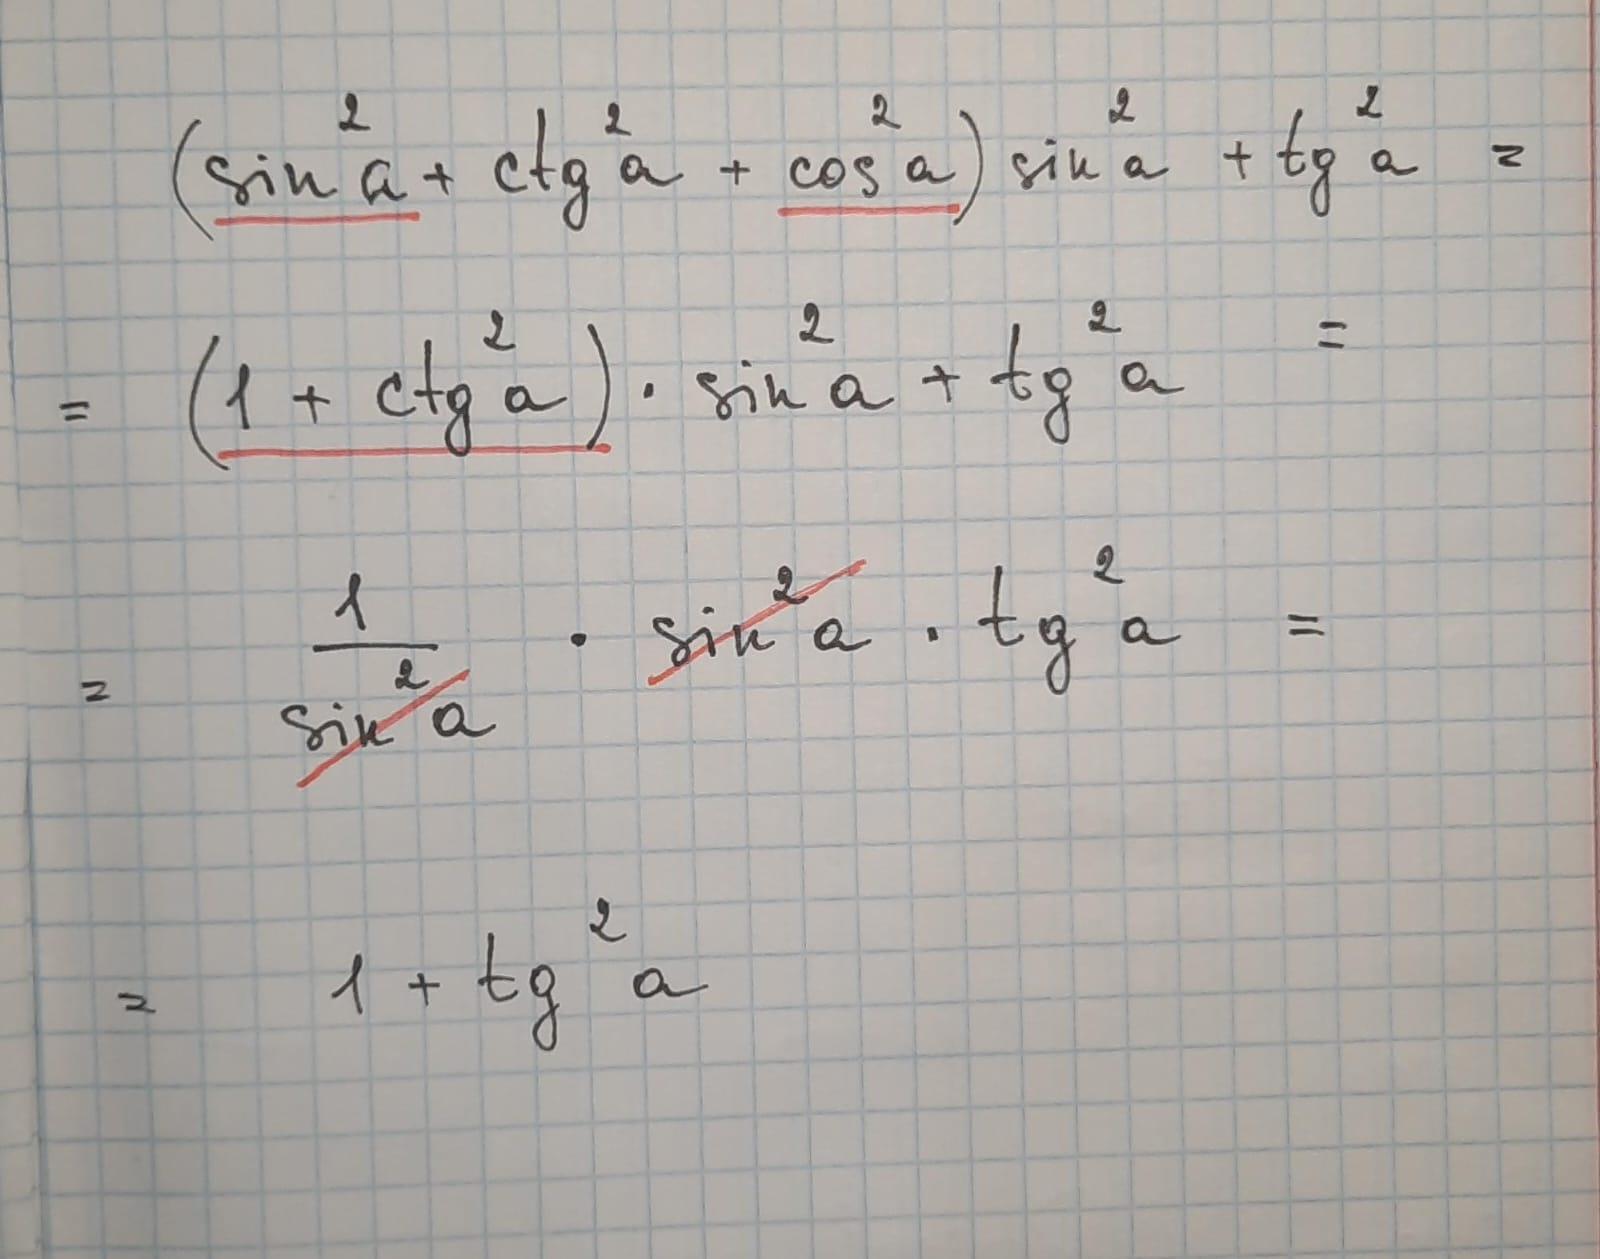 (sin²a + ctg²a + cos²a) sin²a + tg²a =
= (1 + ctg²a) · sin²a + tg²a =
= 1/sin²a · sin²a · tg²a =
= 1 + tg²a